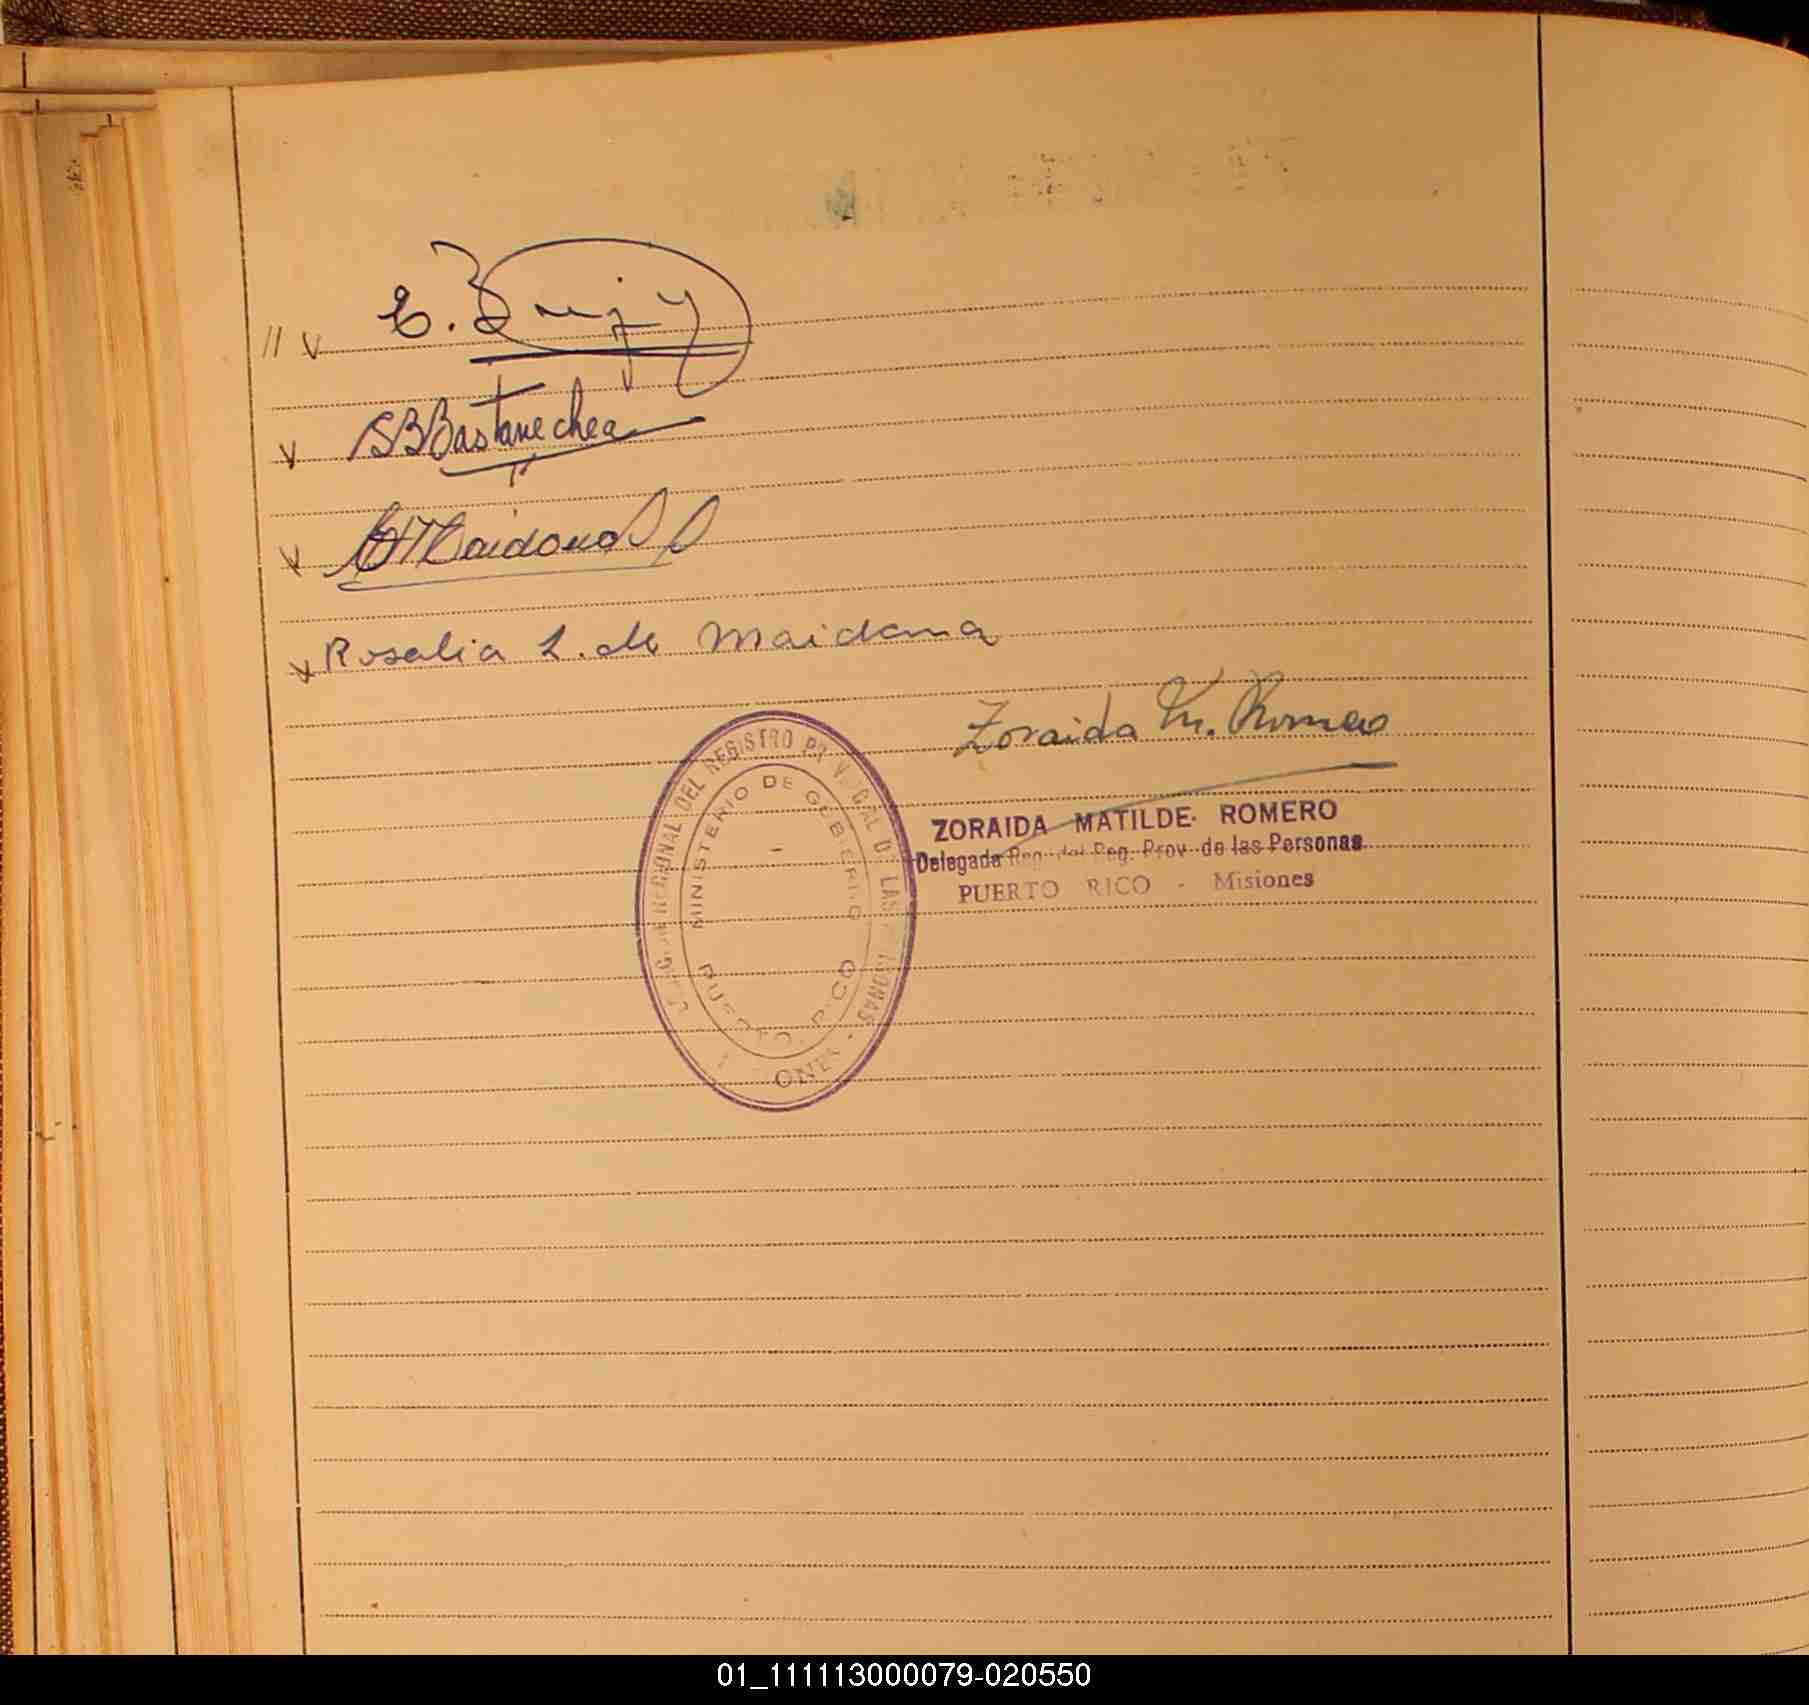 // V E.
V SBBastanechea
V Maidana
V Rosalia L. de Maidana
Zoraida M. Romero
ZORAIDA MATILDE ROMERO
Delegada Reg. del Reg. Prov. de las Personas
PUERTO RICO - Misiones
REGIONAL DEL REGISTRO DE LAS
MINISTERIO DE GOBIERNO
PUERTO RICO
01_111113000079-020550